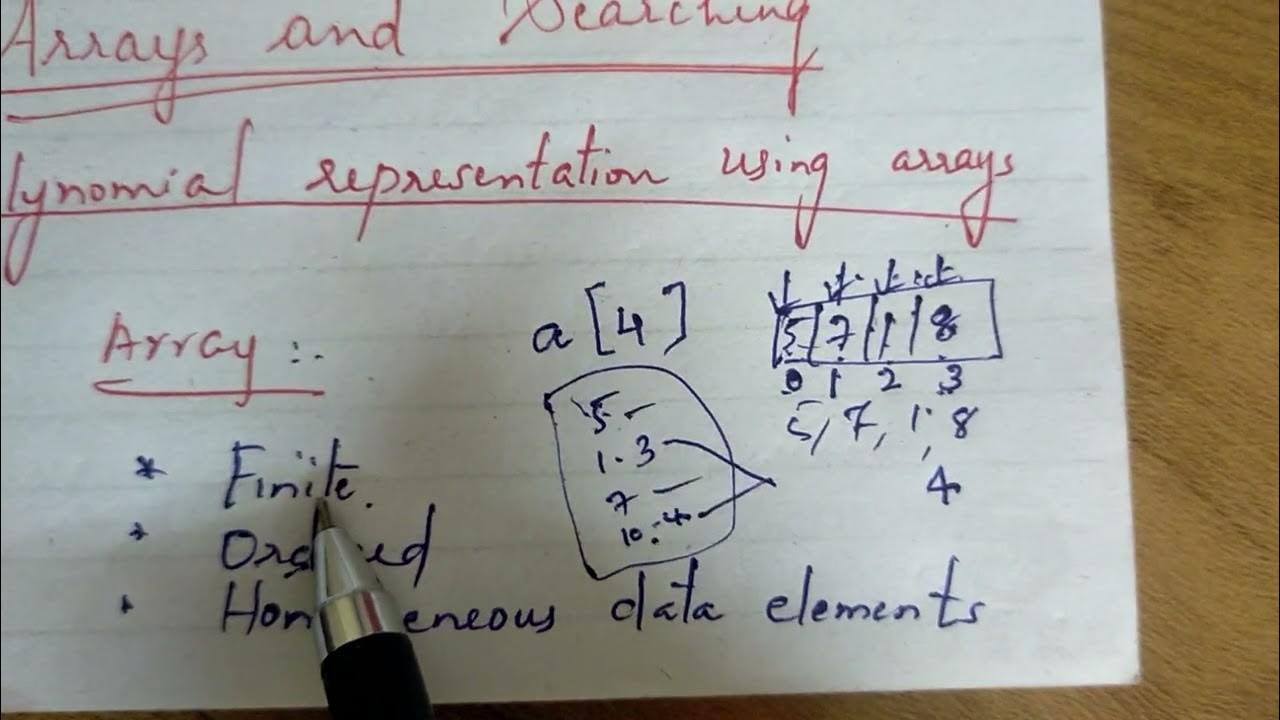 Arrays and Searching
lynomial representation using arrays
Array :-
a[4]
5 7 1 8
0 1 2 3
5, 7, 1, 8
4
5
1.3
7
10.4
* Finite.
* Ordered
* Homogeneous data elements